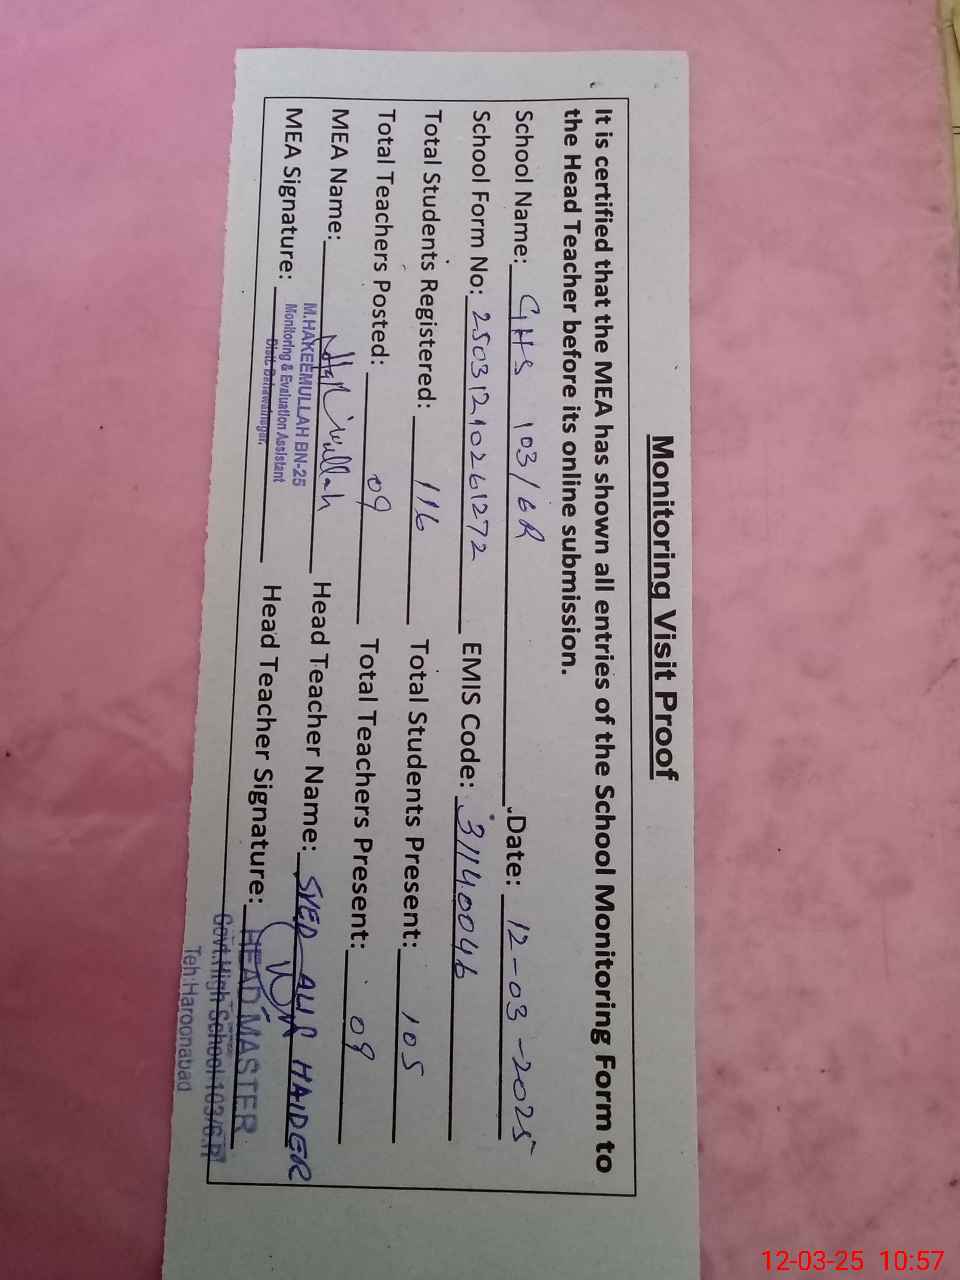 Monitoring Visit Proof
It is certified that the MEA has shown all entries of the School Monitoring Form to
the Head Teacher before its online submission.
School Name: GHS 103/6R Date: 12-03-2025
School Form No: 25031210261272 EMIS Code: 31140046
Total Students Registered: 116 Total Students Present: 105
Total Teachers Posted: 09 Total Teachers Present: 09
MEA Name: Head Teacher Name: SYED ALI HAIDER
MEA Signature: Head Teacher Signature:
M.HAKEEMULLAH BN-25
Monitoring & Evaluation Assistant
Distt. Bahawalnagar.
HEAD MASTER
Govt.High School 103/6.R
Teh:Haroonabad
12-03-25 10:57